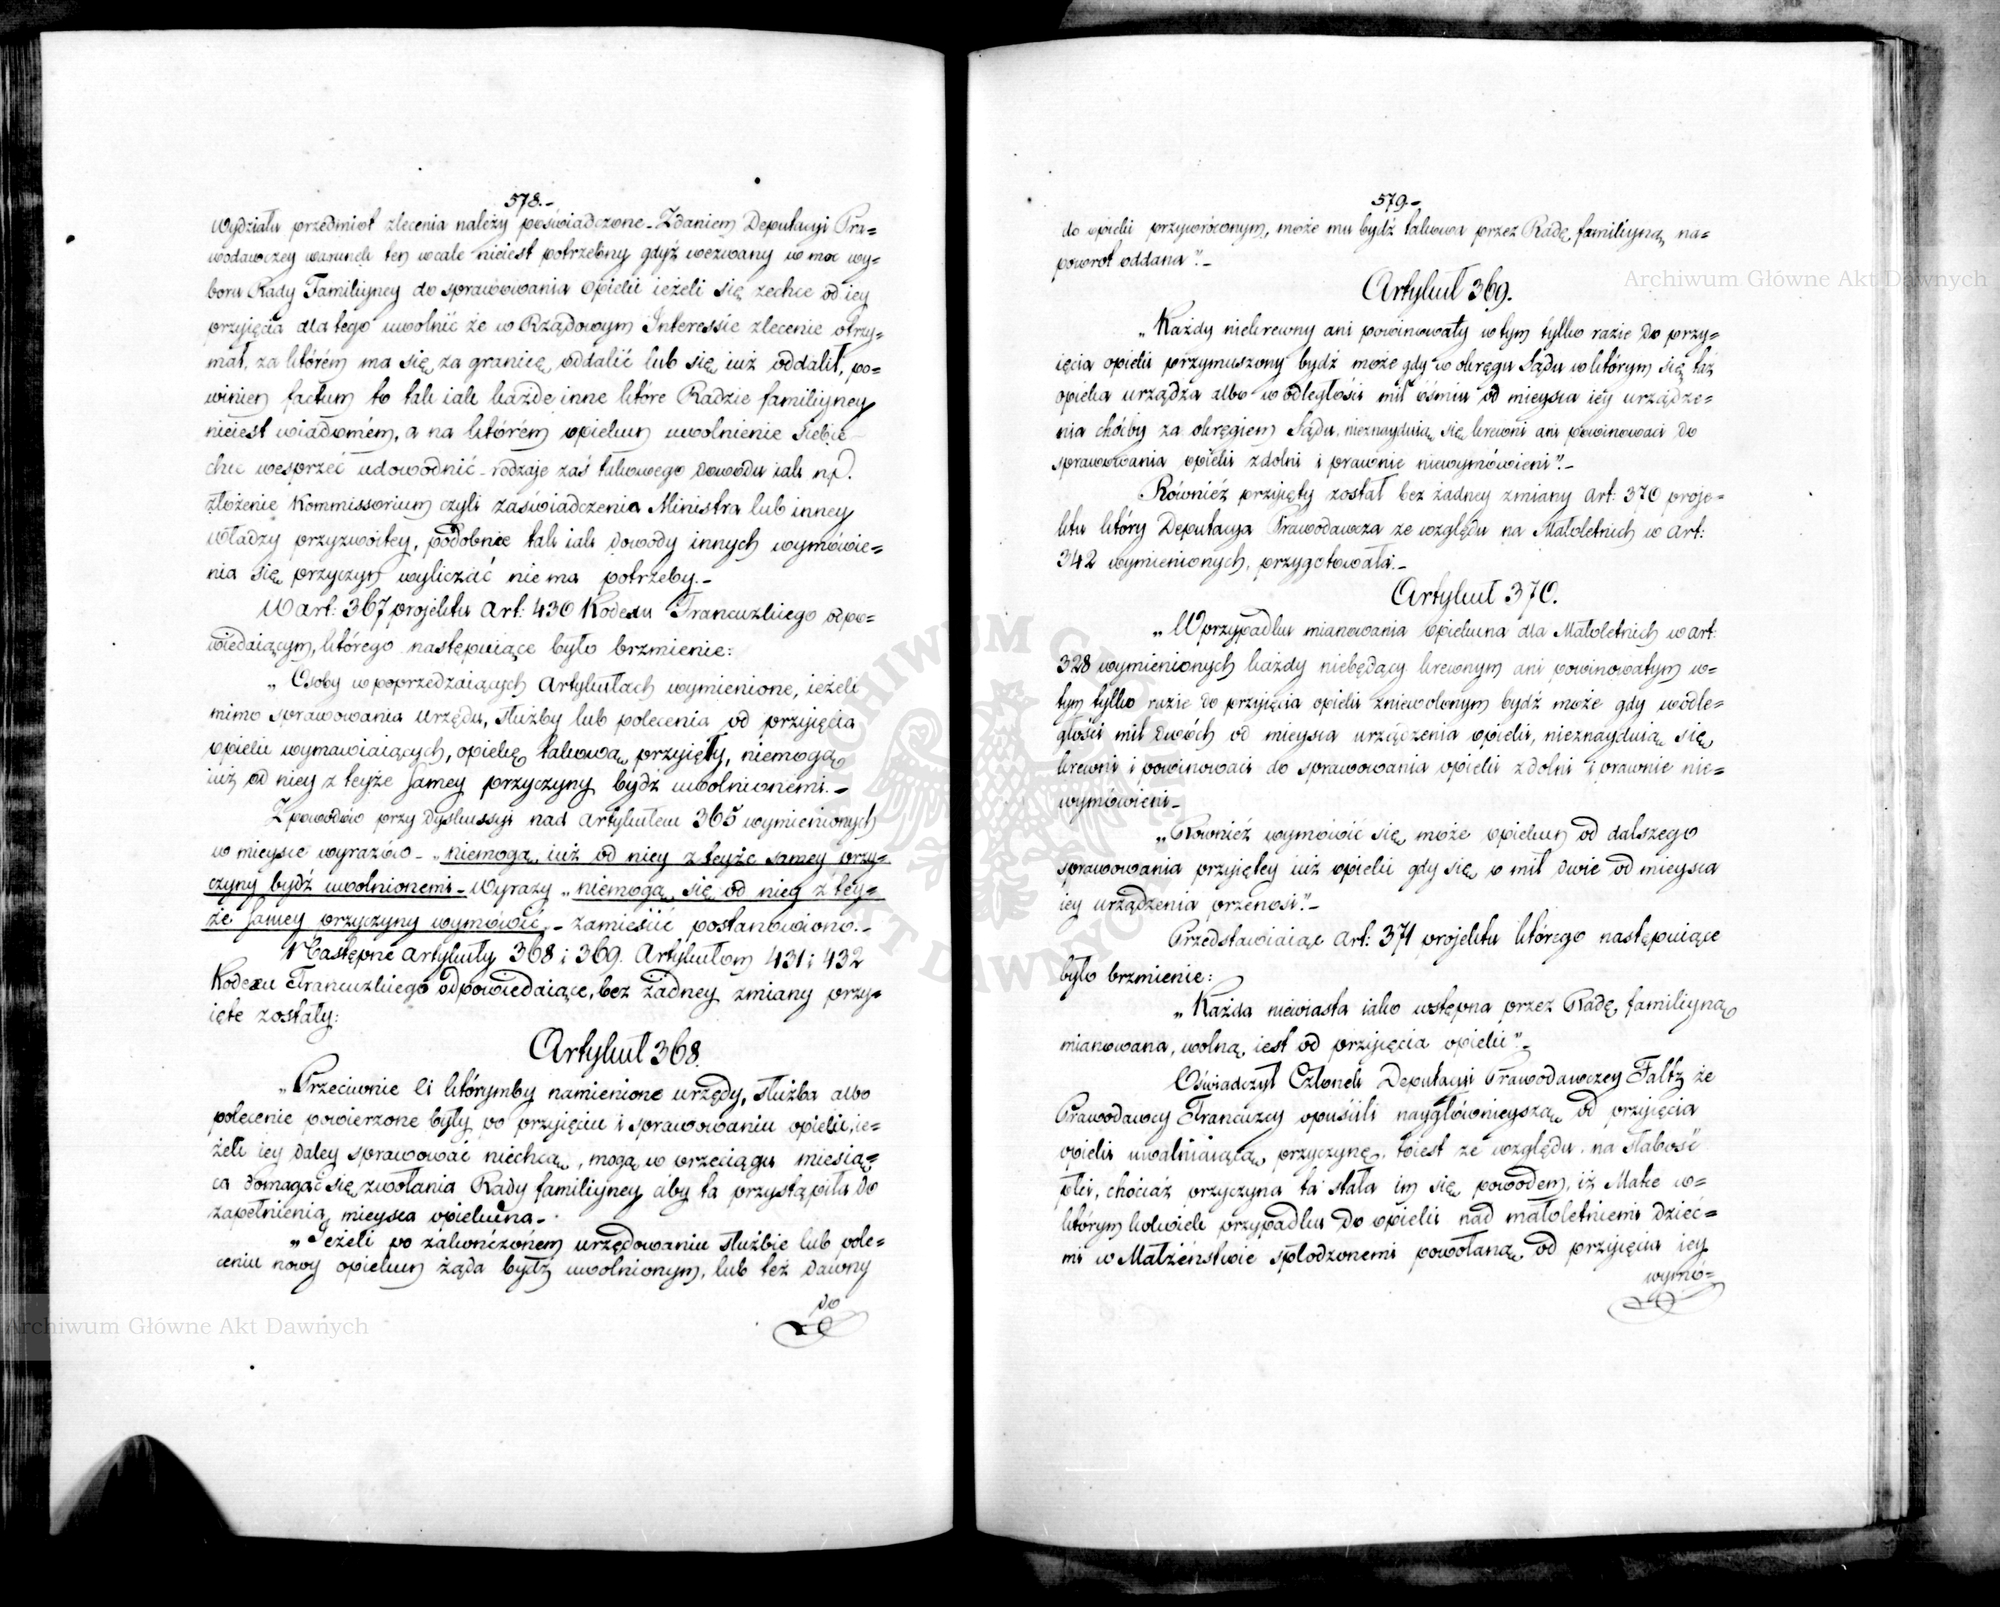 578.-
Wydziału przedmiot zlecenia należy poświadczone_ Zdaniem Deputacyi Pra=
wodawczey warunek ten wcale nieiest potrzebny gdyż wezwany w moc wy=
boru Rady Familiyney do sprawowania Opieki ieżeli się zechce od iey
przyięcia dla tego uwolnić że w Rządowym Interessie zlecenie otrzy=
mał, za którém ma się za granicę oddalić lub się iuż oddalił, po=
winien factum to tak iak każde inne które Radzie familiyney
nieiest wiadomém, a na którém opiekun uwolnienie siebie
chce wesprzeć udowodnić_ rodzaje zaś takowego dowodu iak np.
złożenie Kommissorium czyli zaświadczenia Ministra lub inney
władzy przyzwoitey, podobnie tak iak dowody innych wymówie=
nia się przyczyn wyliczać niema potrzeby._
W art: 367 projektu Art: 430 Kodexu Francuzkiego odpo=
wiedaiącym, którego następuiące było brzmienie:
„Osoby w poprzedzaiących Artykułach wymienione, ieżeli
mimo sprawowania urzędu, służby lub polecenia od przyięcia
opieki wymawiaiących, opiekę takową przyięły, niemogą
iuż od niey z teyże samey przyczyny bydź uwolnionemi._
Z powodów przy Dyskussyi nad Artykułem 365 wymienionych
w mieysce wyrazów_ „niemogą iuż od niey z teyże samey przy=
czyny bydź uwolnionemi_ Wyrazy „niemogą się od niey z tey=
że samey przyczyny wymówić_ zamieścić postanowiono._
Następne Artykuły 368 i 369. Artykułom 431 i 432
Kodexu Francuzkiego odpowiedaiące, bez żadney zmiany przy=
ięte zostały:
Artykuł 368.
„Przeciwnie ci którymby namienione urzędy, służba albo
polecenie powierzone były po przyięciu i sprawowaniu opieki, ie=
żeli iey daley sprawować niechcą, mogą w przeciągu miesią=
ca domagać się zwołania Rady familiyney aby ta przystąpiła do
zapełnienia mieysca opiekuna_.
„Jeżeli po zakończoném urzędowaniu służbie lub pole=
ceniu nowy opiekun żąda bydź uwolnionym, lub też dawny
do
579.-
do opieki przywróconym, może mu bydź takowa przez Radę familiyną na=
powrot oddana”._
Artykuł 369.
„Każdy niekrewny ani powinowaty w tym tylko razie do przy=
ięcia opieki przymuszony bydź może gdy w okręgu Sądu w którym się taż
opieka urządza albo w odległości mil ośmiu od mieysca iey urządze=
nia choćby za okręgiem Sądu, nieznayduią się krewni ani powinowaci do
sprawowania opieki zdolni i prawnie niewymówieni”._
Również przyięty został bez żadney zmiany Art: 370 proje=
ktu który Deputacya Prawodawcza ze względu na Małoletnich w Art:
342 wymienionych, przygotowała._
Artykuł 370.
„W przypadku mianowania opiekuna dla Małoletnich w art:
328 wymienionych każdy niebędący krewnym ani powinowatym w=
tym tylko razie do przyięcia opieki zniewolonym bydź może gdy w odle=
głości mil dwóch od mieysca urządzenia opieki, nieznayduią się
krewni i powinowaci do sprawowania opieki zdolni i prawnie nie=
wymówieni_
„Również wymówić się może opiekun od dalszego
sprawowania przyiętey iuż opieki gdy się o mil dwie od mieysca
iey urządzenia przenosi”._
Przedstawiaiąc Art: 371 projektu którego następuiące
było brzmienie:
„Każda niewiasta iako wstępna przez Radę familiyną
mianowana, wolną iest od przyięcia opieki”._
Oświadczył Członek Deputacyi Prawodawczey Faltz że
Prawodawcy Francuzcy opuścili nayglównieyszą od przyięcia
opieki uwalniaiącą przyczynę, toiest ze względu na słabość
płci, chociaż przyczyna ta stała im się powodem, iż Matce w=
którym kolwiek przypadku do opieki nad małoletniemi dzieć=
mi w Małżeństwie spłodzonemi powołaną, od przyięcia iey
wymó=
Archiwum Główne Akt Dawnych
Archiwum Główne Akt Dawnych
ARCHIWUM GŁÓWNE AKT DAWNYCH